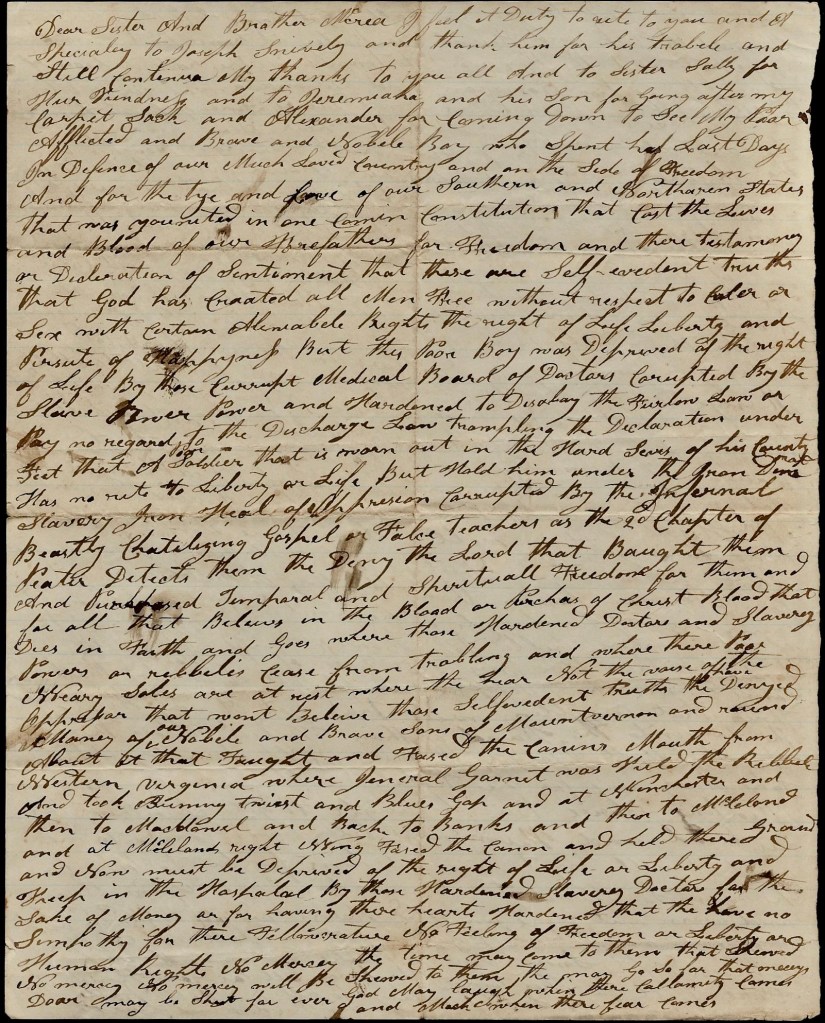 Dear Sister And Brother McCrea I feel it Duty to rite to you and A
Specialey to Joseph Snively and thank him for his trabele and
Still Contenue My thanks to you all And to Sister Sally for
Hur Kindness and to Jeremiaha and his Son for Going after my
Carpit Sack and Alexander for Coming Down to See My Poor
Afflicted and Brave and Nobele Boy who Spent his Last Days
In Defence of our Much Loved Country and on the Side of Freedom
And for the tye and Love of our Southern and Northaren States
that was younited in one Comin Constitution that Cost the Lives
and Blood of our Forefathers for Freedom and there testamoney
or Decleration of Sentiment that these are Self-evedent truths
that God has Craated all Men Free without respect to Coler or
Sex with Certain Alinabele Rights the right of Life Liberty and
Pirsute of Happyness But this Poor Boy was Deprived of the right
of Life By those Currupt Medical Board of Doctars Corupted By the
Slave Power Power and Hardened to Disabay the Furlow Law or
Pay no regard to the Discharge Law trampling the Declaration under
Feet that A Poor Soldier that is worn out in the Hard Servis of his Country
Has no rite to Liberty or Life But Hold him under the Iron
Slavery Iron Heal of Oppresion Corrupted By the Infernal
Beastly Chatilizing Gospel or False teachers as the 2d Chapter of
Peater Detects them the Deny the Lord that Baught them
And Purchased Temparal and Spirituall Freedom for them and
for all that Beleives in the Blood or Purchas of Christ Blood that
Dies in Faith and Goes where those Hardened Doctars and Slaverey
Powers or rebbelis Cease from trabling and where there Poor
Weary Soles are at rest where the hear Not the voise of the
Oppresar that wont Beleive those Selfevedent truths the have Denyed
Maney of our Nobele and Brave Sons of Mountvernon and round
About it that Faught and Fased the Canins Mouth from
Western virginia where Jeneral Garnet was Kield the Rebbele
And took Bunny twist and Blues Gap and at Winchester and
then to Macdowel and Back to Banks and then to McCleland
and at McCleland right Wing Fased the Canon and held there Ground
and Now must be Deprived of the right of Life or Liberty and
Keep in the Hospital By those Hardened Slaverey Doctors for the
Sake of Money or for having there hearts Hardened that the have no
Simpothy for there Fellowcrature No Feeling of Freedom or Liberty and
Human Rights No Mercy the time may come to them that Shewed
No mercy No mercy will Be Shewed to them the may Go So far that mercys
Door may be Shut for ever God May laugh when there Callamity Comes
and Mock when there fear Comes